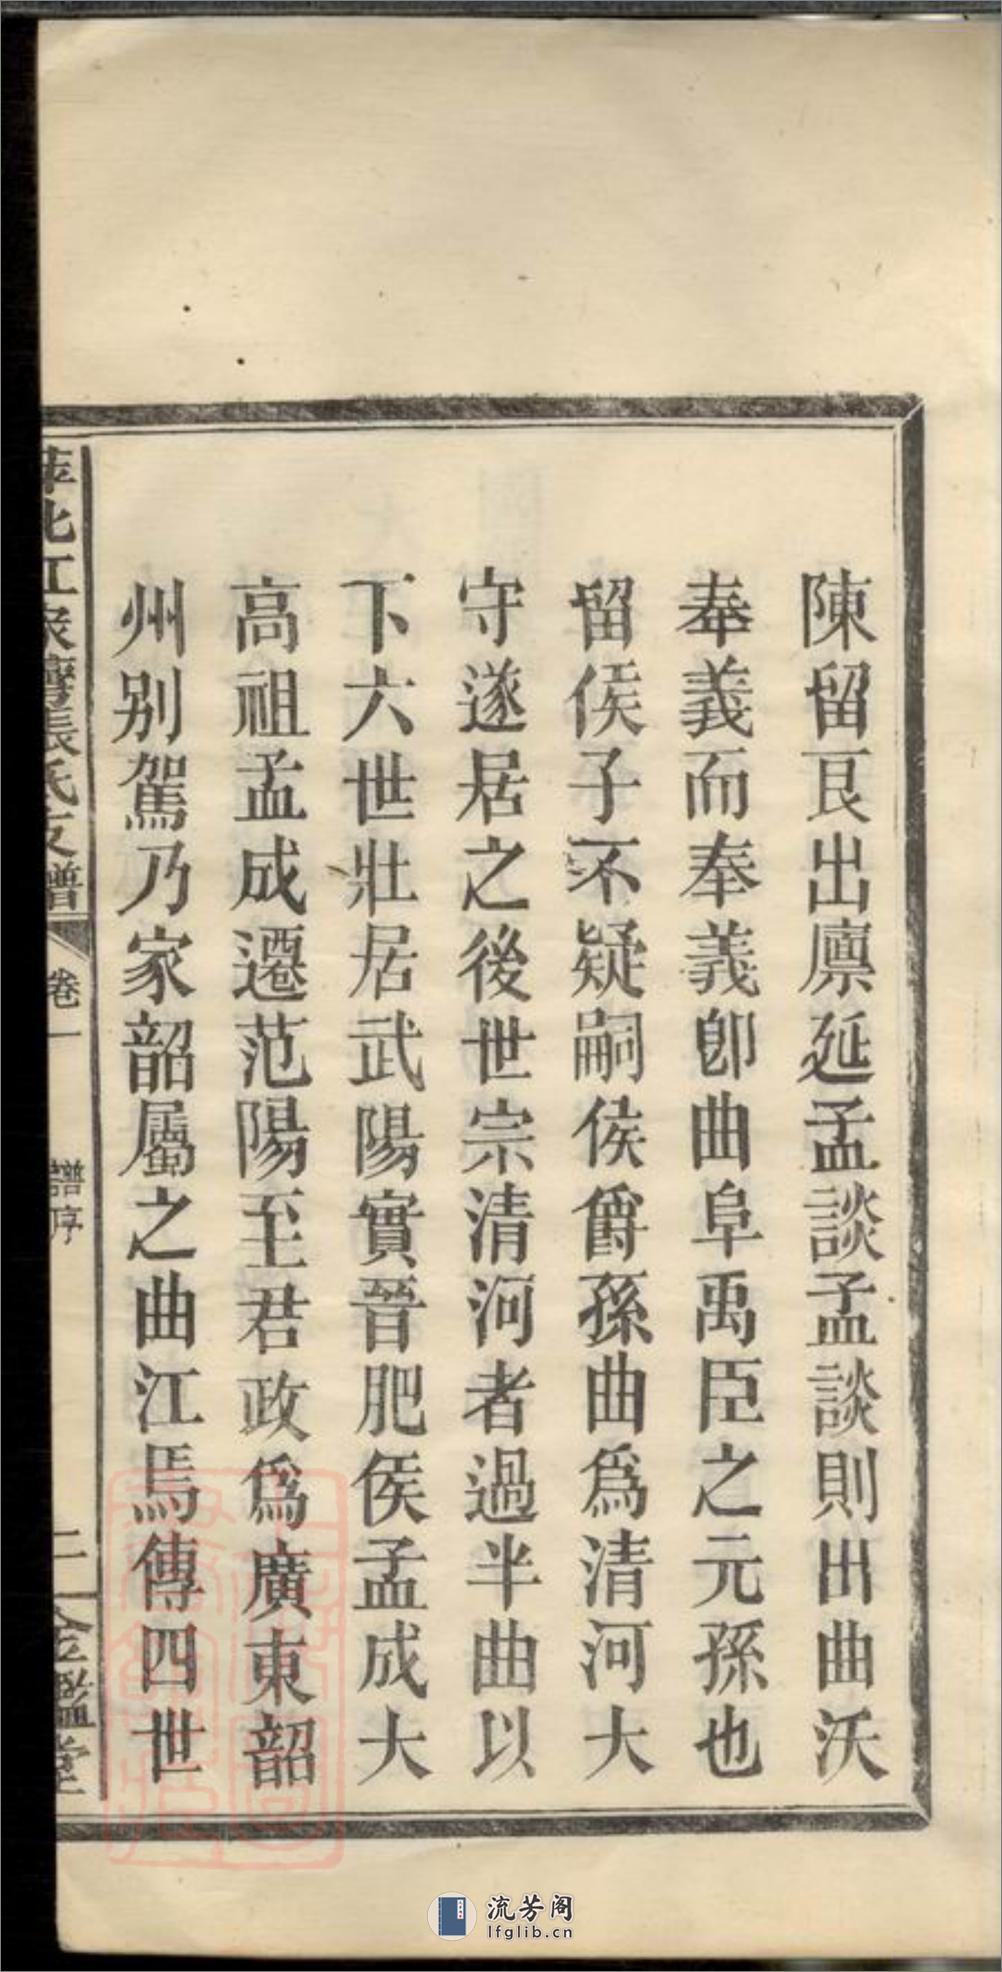 陳留良出廩延孟談孟談則出曲沃
奉義而奉義卽曲阜禹臣之元孫也
留侯子不疑嗣侯爵孫曲爲清河大
守遂居之後世宗清河者過半曲以
下六世壯居武陽實晉肥侯孟成大
高祖孟成遷范陽至君政爲廣東韶
州别駕乃家韶屬之曲江焉傳四世
萍北江泉灣張氏支譜
卷一
譜序
二
金鑑堂
流芳阁
lfglib.cn